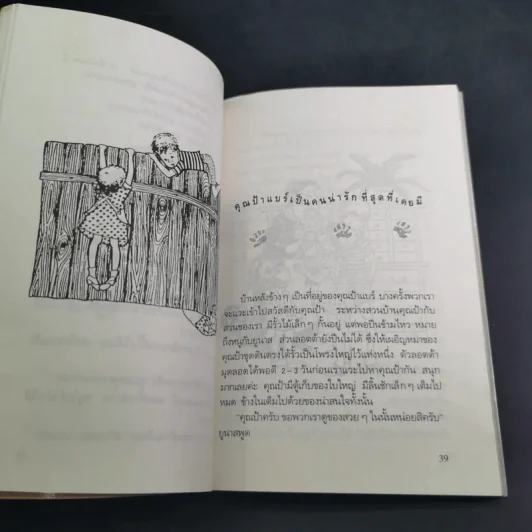 คุณป้าแบร์เป็นคนน่ารักที่สุดที่เคยมี
บ้านหลังข้างๆ เป็นที่อยู่ของคุณป้าแบร์ บางครั้งพวกเรา
จะแวะเข้าไปสวัสดีกับคุณป้า ระหว่างสวนบ้านคุณป้ากับ
สวนของเรา มีรั้วไม้เล็กๆ กั้นอยู่ แต่พอปีนข้ามไหว หมาย
ถึงหนูกับยูนาส ส่วนลอตต้ายังปีนไม่ได้ ซึ่งให้เผอิญหมาของ
คุณป้าขุดดินตรงใต้รั้วเป็นโพรงใหญ่ไว้แห่งหนึ่ง ตัวลอตต้า
มุดลอดได้พอดี 2-3 วันก่อนเราแวะไปหาคุณป้ากัน สนุก
มากเลยค่ะ คุณป้ามีตู้เก็บของใบใหญ่ มีลิ้นชักเล็กๆ เต็มไป
หมด ข้างในเต็มไปด้วยของน่าสนใจทั้งนั้น
"คุณป้าครับ ขอพวกเราดูของสวยๆ ในนั้นหน่อยสิครับ"
ยูนาสพูด
39